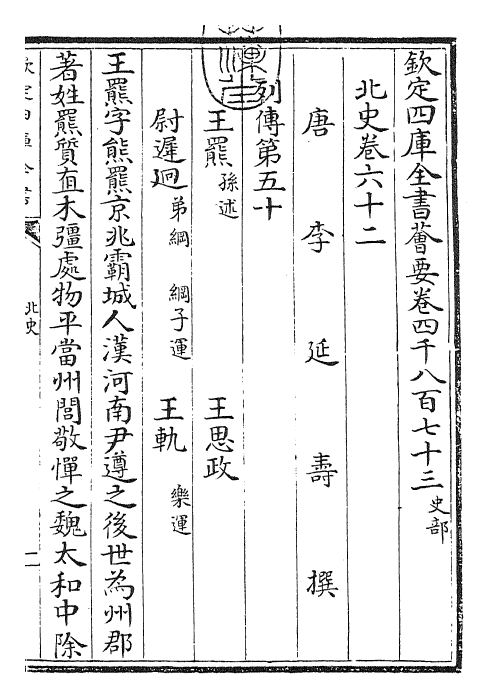 欽定四庫全書薈要卷四千八百七十三史部
北史卷六十二
唐李延壽撰
列傳第五十
王羆孫述 王思政
尉遲迥弟綱 綱子運 王軌樂運
王羆字熊羆京兆霸城人漢河南尹遵之後世為州郡
著姓羆質直木彊處物平當州閭敬憚之魏太和中除
欽定四庫全書
北史